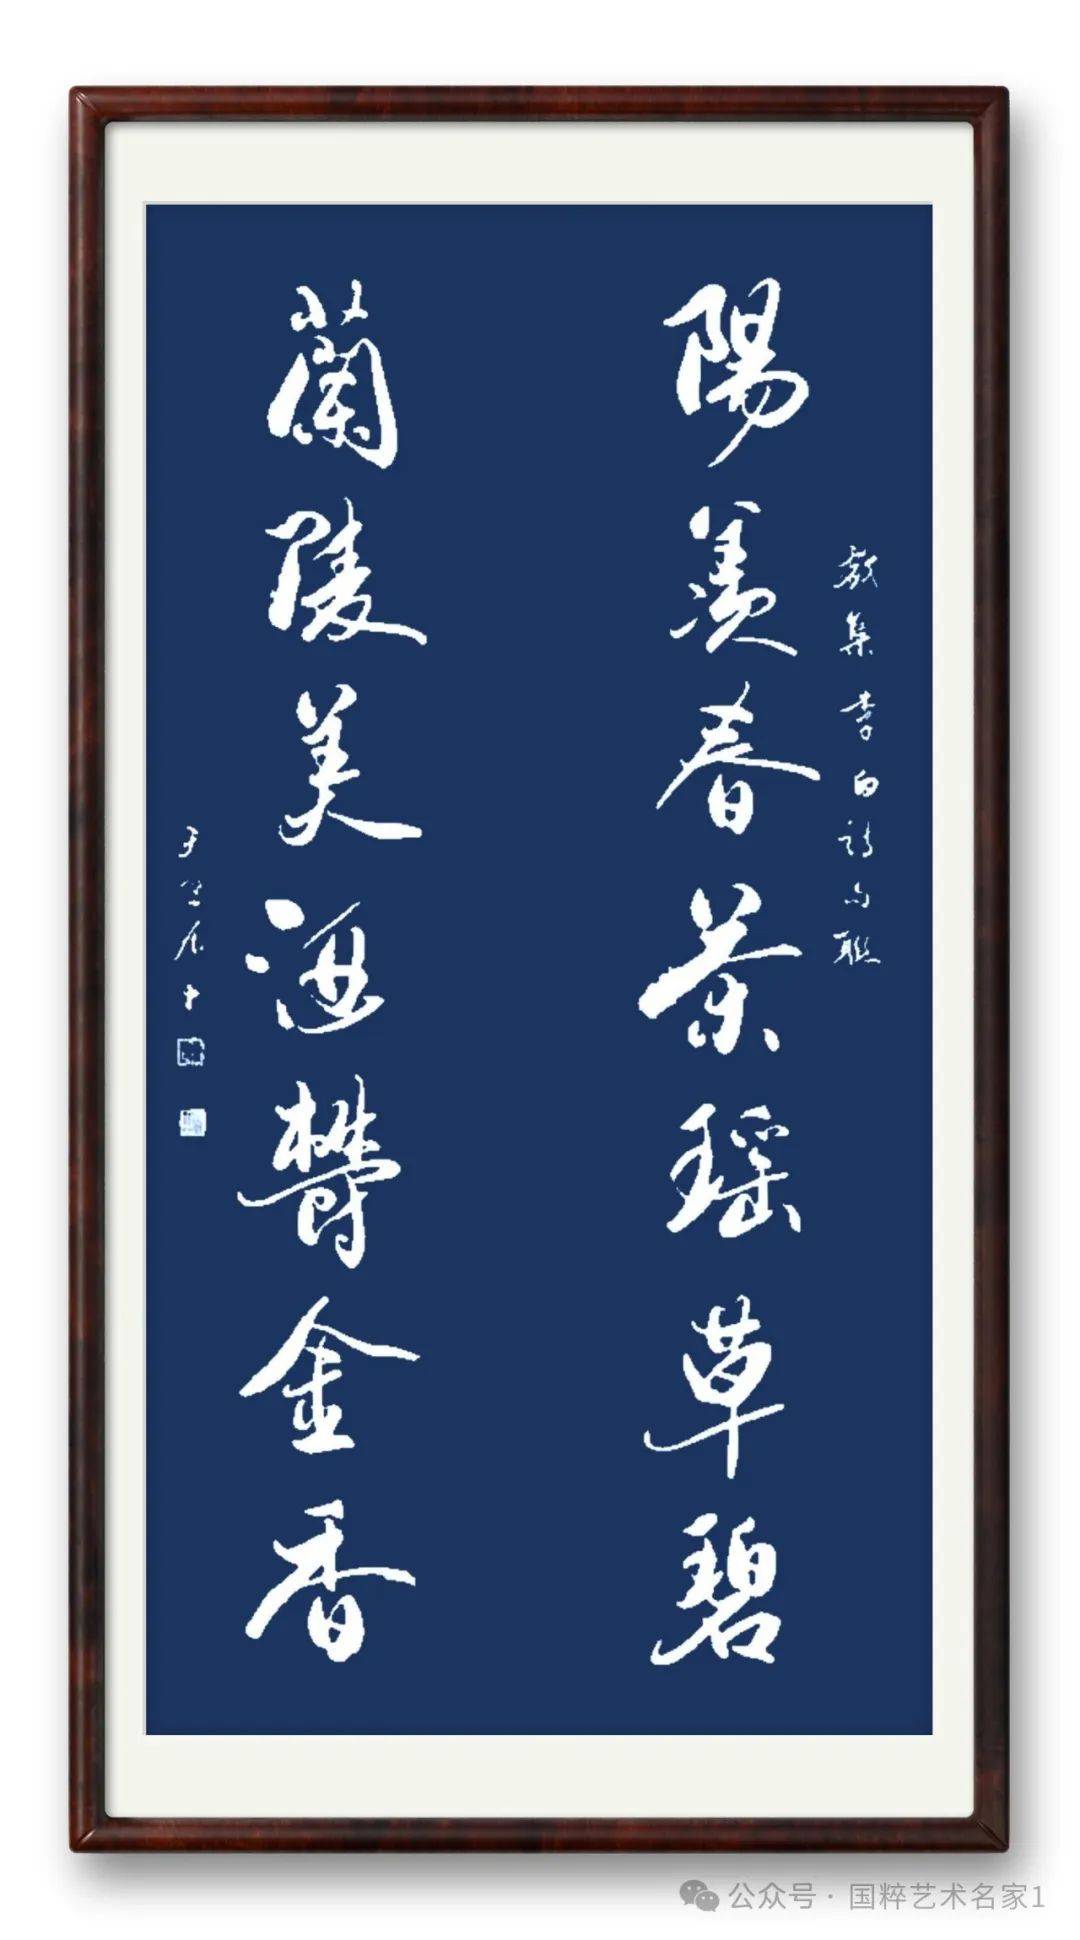 敬集李白詩句聯
陽羨春茶瑤草碧
蘭陵美酒鬱金香
公众号·国粹艺术名家1